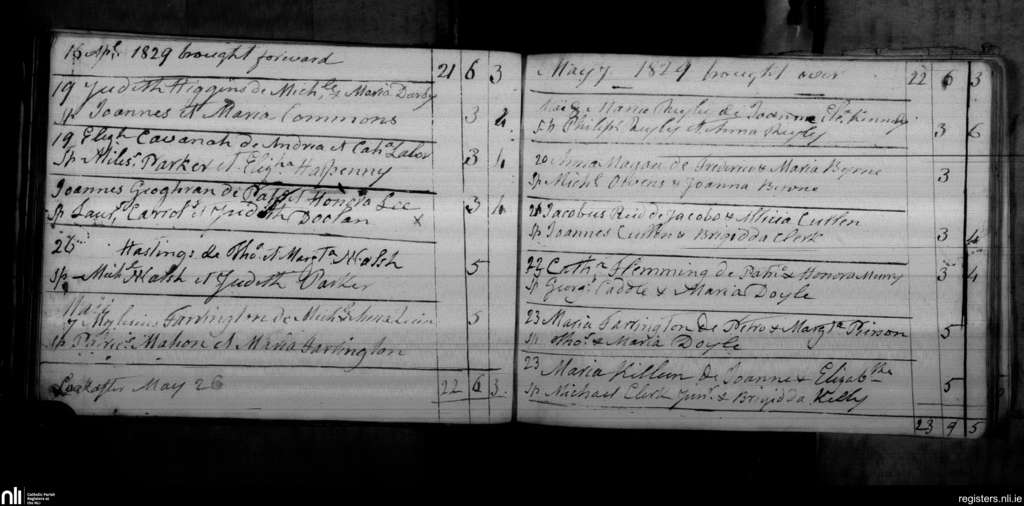 16 Apl. 1829 brought forward 21 6 3
19 Judith Higgins de Michle & Maria Darby
Sp Joannes et Maria Commons 3 4
19 Eligh Cavanah de Andrea et Catha Lalor
Sp Miles Parker et Eligha Halpenny 3 4
Joannes Geoghran de Patt et Honora Lee
Sp Laure Carrol et Judith Doolan x 3 4
26 Hastings de Tho. et Margta Walsh
Sp Mich. Walsh et Judith Parker 5
May
7 Farrington de Mich. & 5
Sp Patrice Mahon et Maria Farrington
Look after May 26 22 6 3
May 7 1829 brought over 22 6 3
Maria Reyly de Joanne & Kenny
Sp Philip Reyly et Anna Reyly 3 6
20 Anna Magan de & Maria Byrne
Sp Michl Owens & Joanna Byrne 3
26 Jacobus Reid de Jacobo & Alicia Cullen
Sp Joannes Cullen & Brigidda Clerk 3 4
22 Catha Flemming de Patri & Honora 3 4
Sp Georg. & Maria Doyle
23 Maria Farrington de Petro & Margta Pierson
Sp Tho. & Maria Doyle 5
23 Maria Killeen de Joanne & Elizabtha
Sp Michael Clerk Junr & Brigidda Kelly 5
23 9 5
nli Catholic Parish
Registers at
the NLI
registers.nli.ie